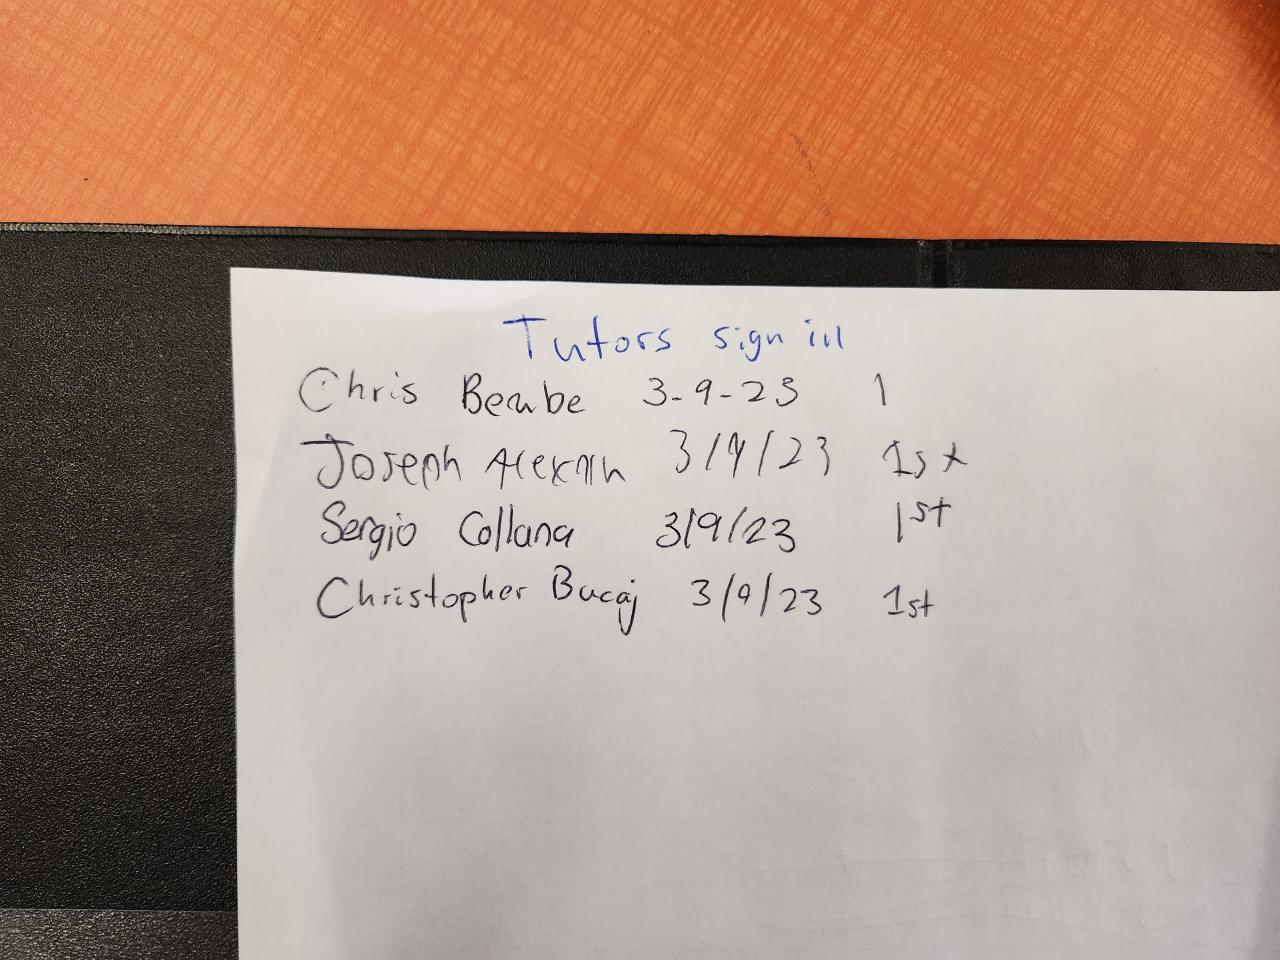 Tutors sign in
Chris 3-9-23 1
Joseph 3/9/23 1st
Sergio Collana 3/9/23 1st
Christopher Bucaj 3/9/23 1st